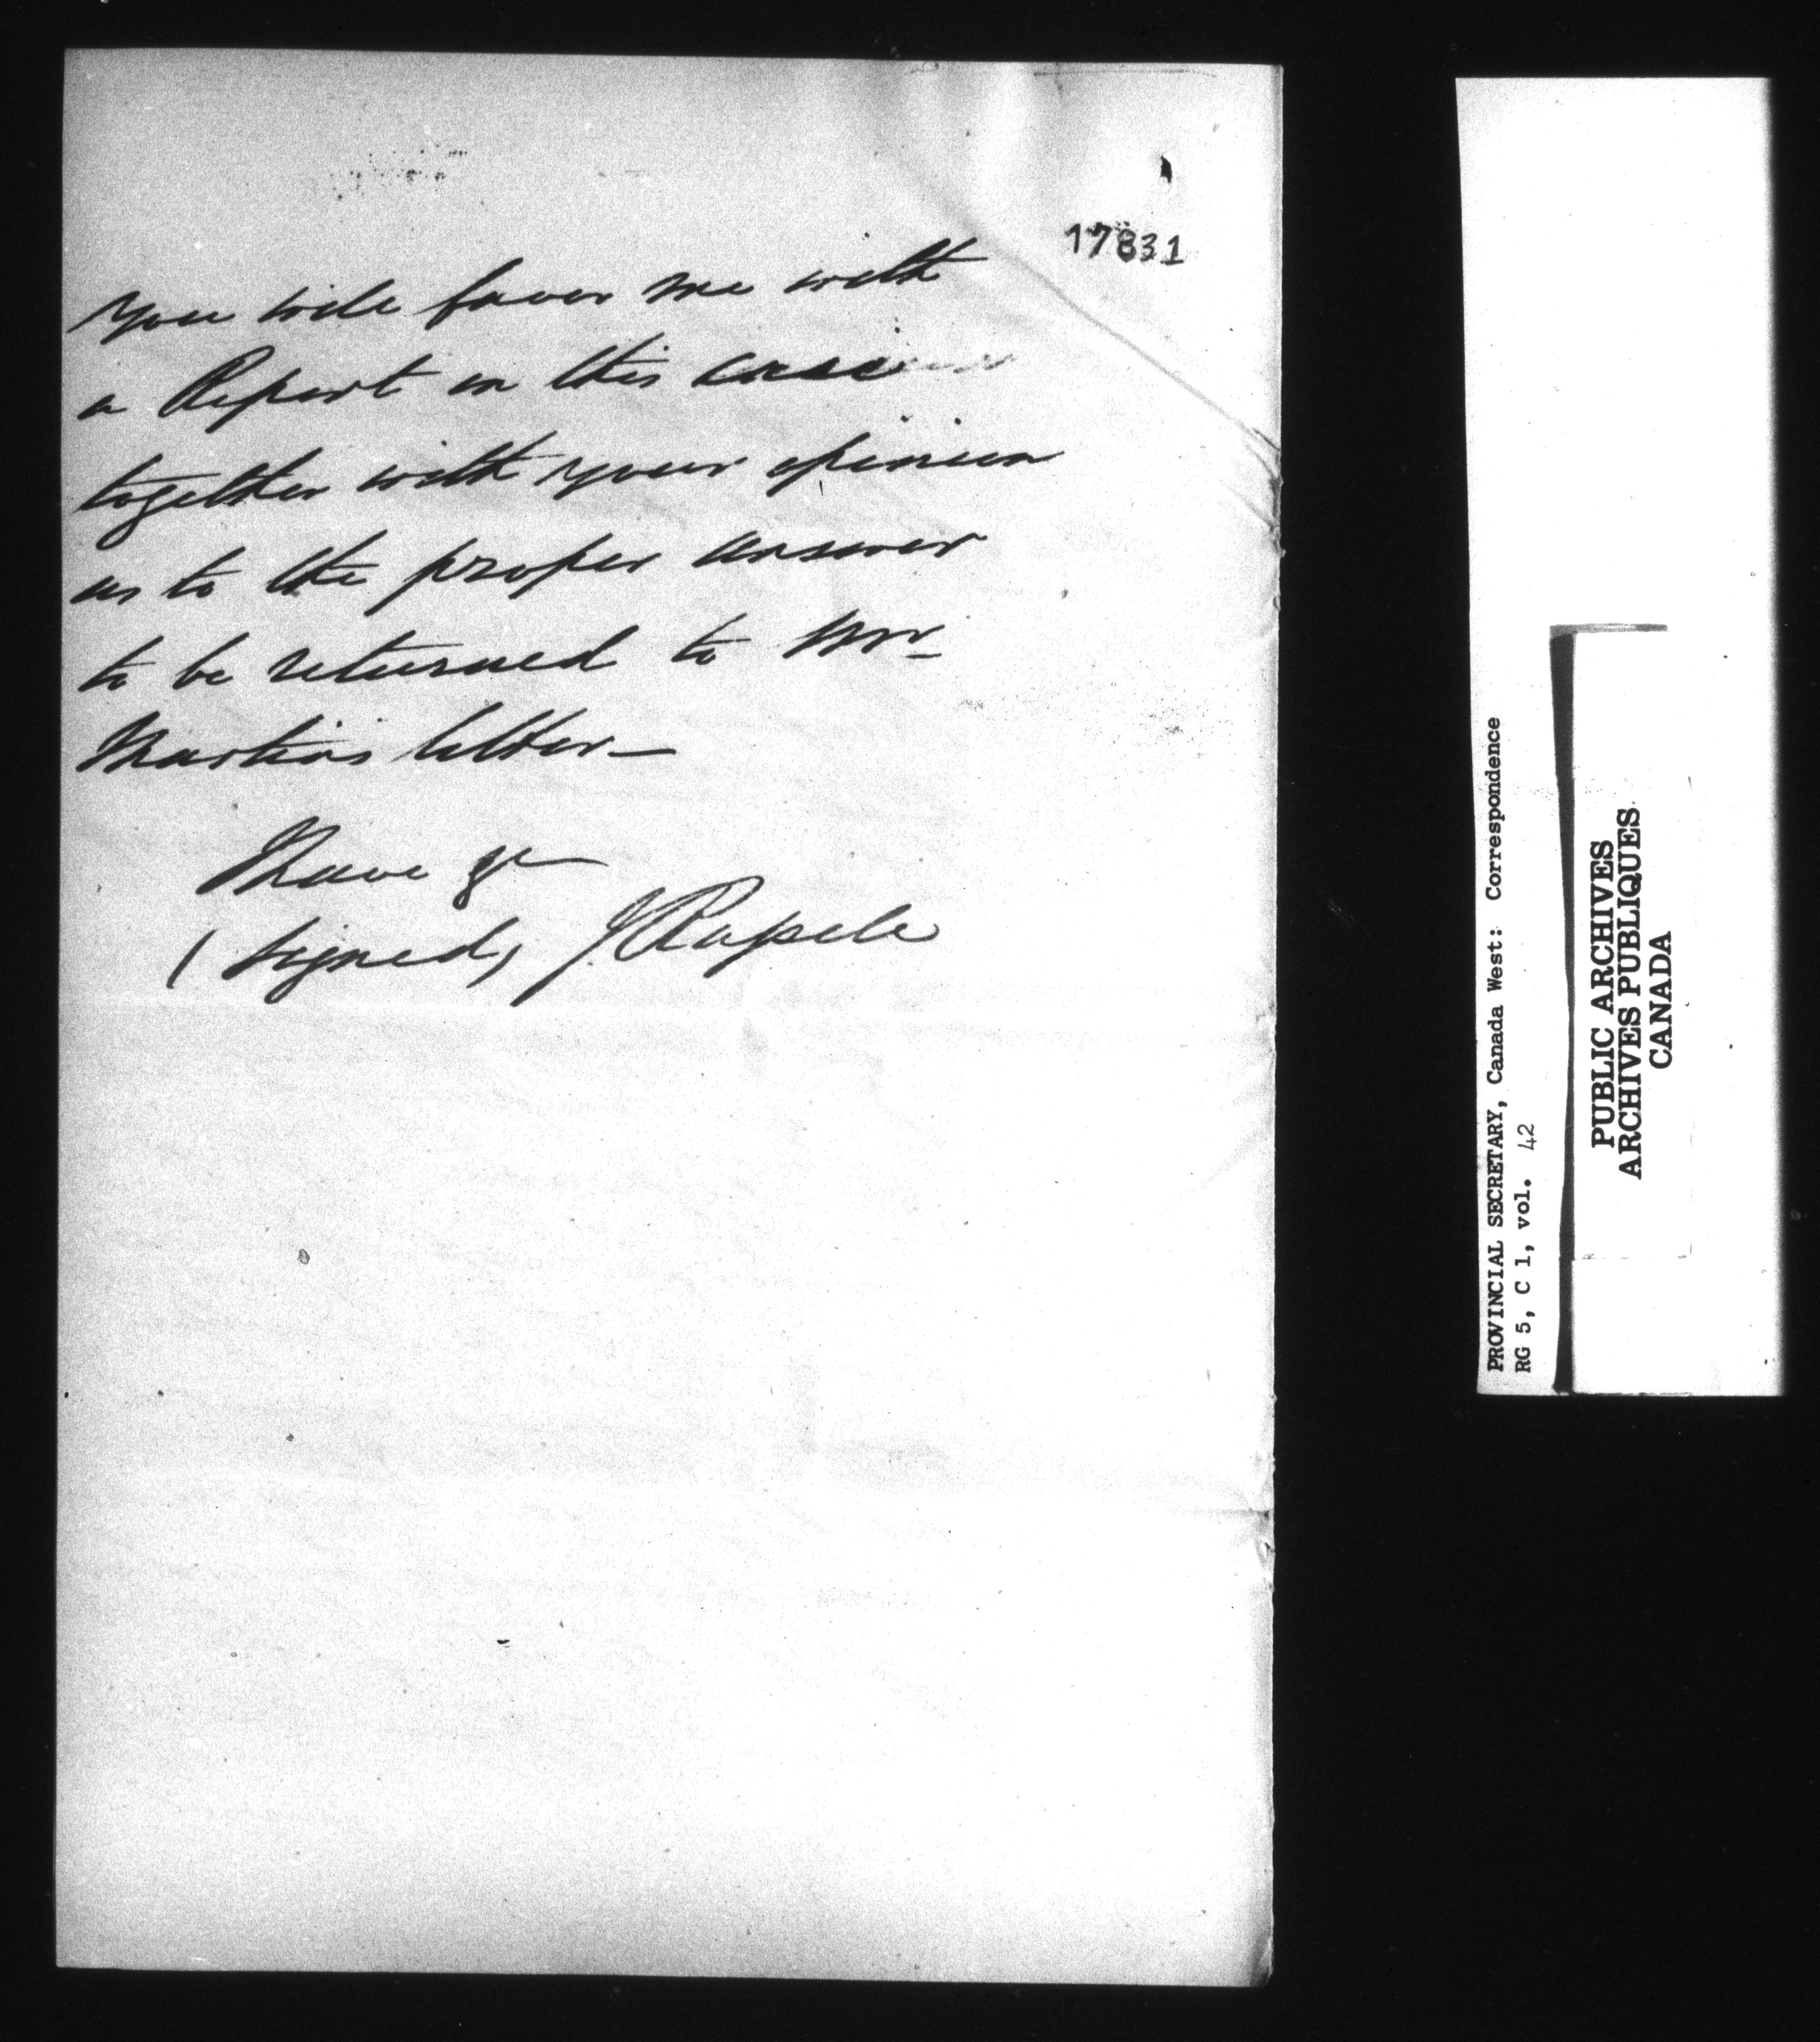 17831
you will favor me with
a Report on this case
together with your opinion
as to the proper answer
to be returned to Mr
Martins letter—
I have &c
(signed) J. Russell
PROVINCIAL SECRETARY, Canada West: Correspondence
RG 5, C 1, vol. 42
PUBLIC ARCHIVES
ARCHIVES PUBLIQUES
CANADA